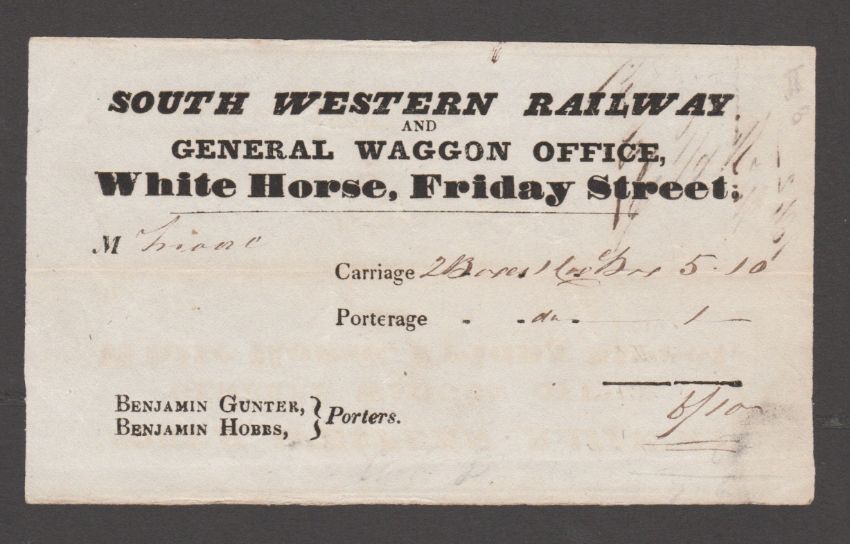 SOUTH WESTERN RAILWAY
AND
GENERAL WAGGON OFFICE,
White Horse, Friday Street;
M
Carriage 2 Boxes 5 . 10
Porterage - - do - 1 —
6/10
BENJAMIN GUNTER, } Porters.
BENJAMIN HOBBS,